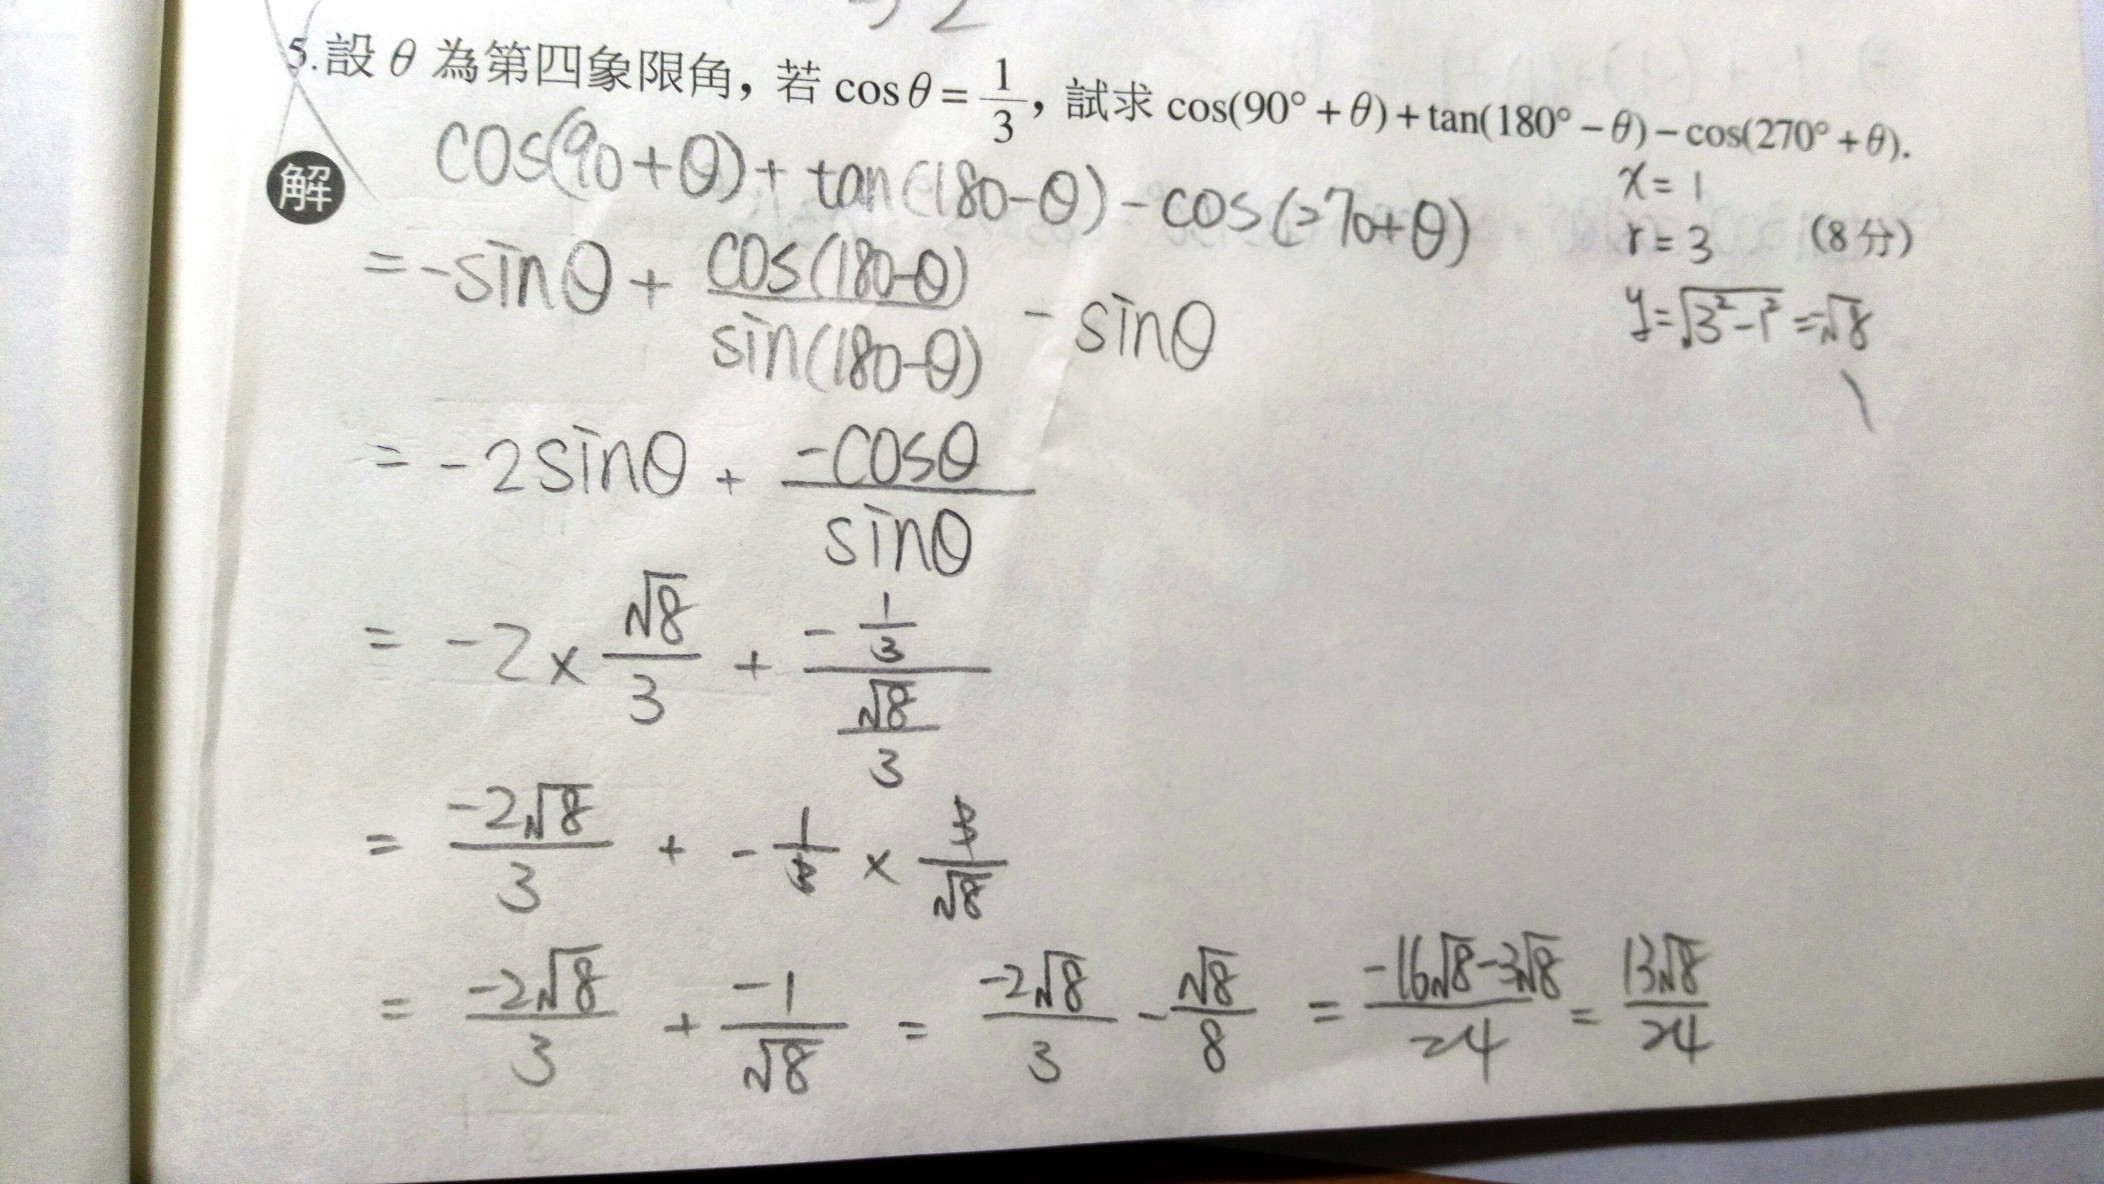 5.設 θ 為第四象限角，若 cosθ = 1/3，試求 cos(90° + θ) + tan(180° − θ) − cos(270° + θ).
(8分)
解
cos(90+θ) + tan(180-θ) - cos(270+θ)
= -sinθ + cos(180-θ)/sin(180-θ) - sinθ
= -2sinθ + -cosθ/sinθ
= -2 × √8/3 + (-1/3)/(√8/3)
= -2√8/3 + -1/3 × 3/√8
= -2√8/3 + -1/√8 = -2√8/3 - √8/8 = (-16√8-3√8)/24 = 13√8/24
x = 1
r = 3
y = √(3²-1²) = -√8